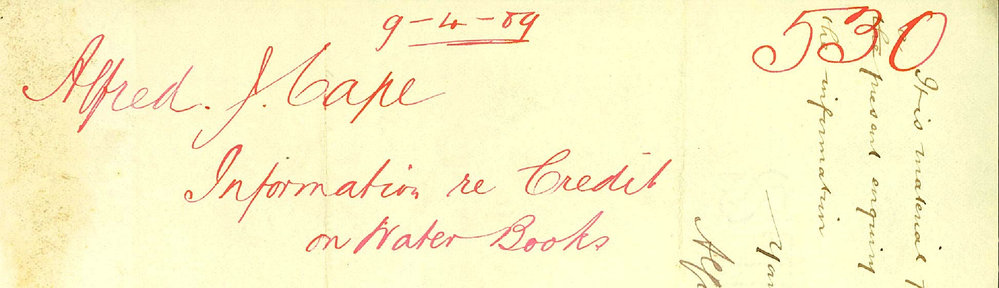 9-4-89
530
Alfred. J. Cape
Information re Credit
on Water Books
It is material
the present enquiry
the information